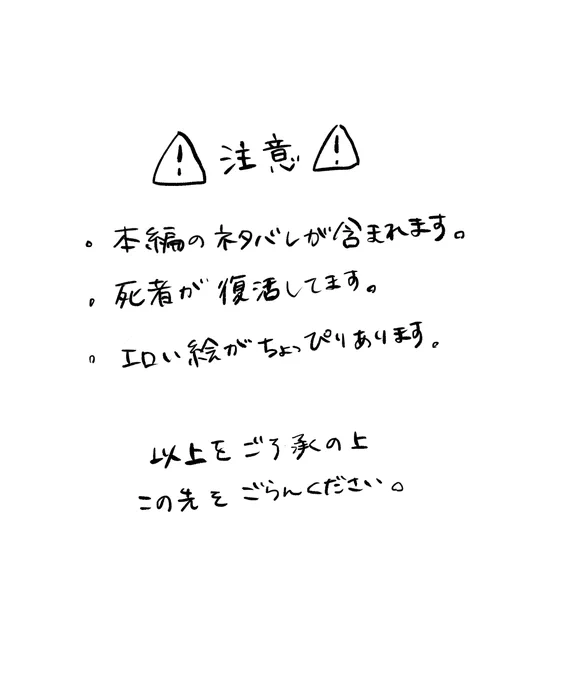 ⚠注意⚠
。本編のネタバレが含まれます。
。死者が復活してます。
。エロい絵がちょっぴりあります。
以上をご了承の上
この先をごらんください。